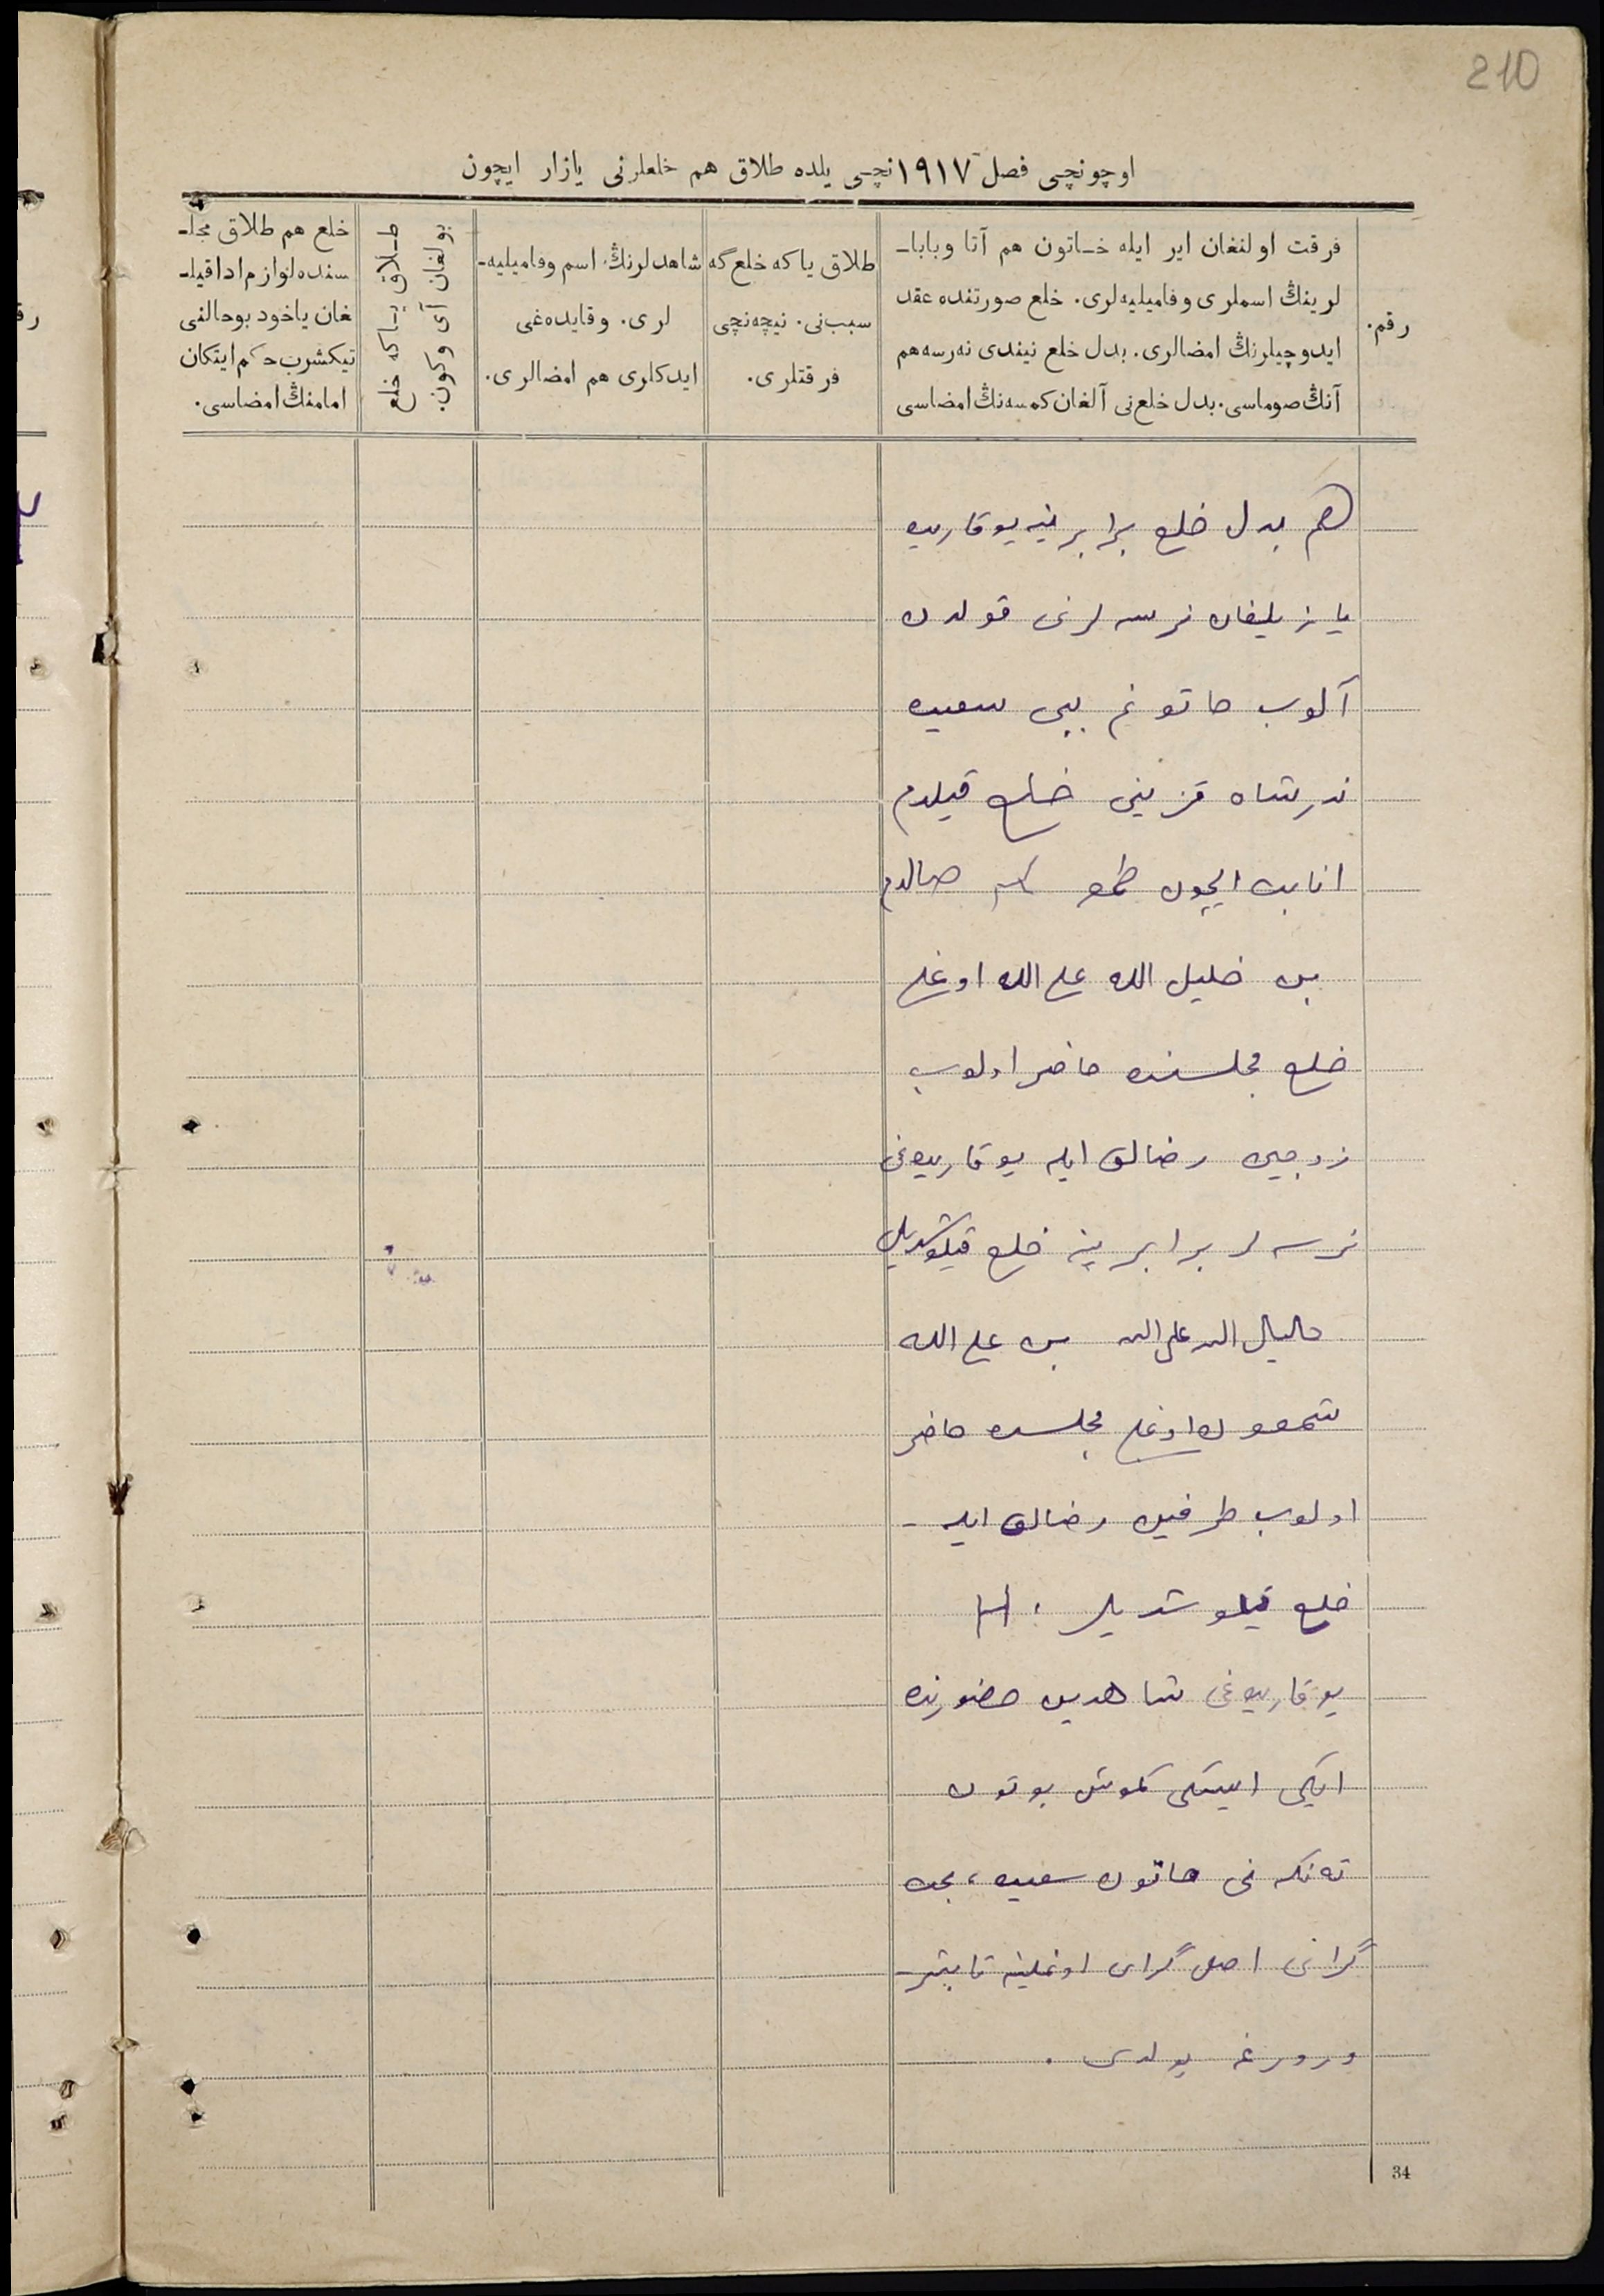 210
اوچونچی فصل ١٩١٧ نچی یلده طلاق هم خلعلرنی یازار ایچون
رقم.
فرقت اولنغان ایر ایله خاتون هم آتا وبابا-
لرینڭ اسملری وفامیلیه‌لری. خلع صورتنده عقد
ایدوچیلرنڭ امضالری. بدل خلع نیندی نه‌رسه هم
آنڭ صوماسی. بدل خلع‌نی آلغان کمسه‌نڭ امضاسی
طلاق یا که خلع گه
سبب‌نی. نیچه‌نچی
فرقتلری.
شاهدلرنڭ اسم وفامیلیه-
لری. وقایده‌غی
ایدکلری هم امضالری.
طلاق یا که خلع
بولغان آی وکون.
خلع هم طلاق مجلـ
سنده لوازم ادا قیلـ
غان یاخود بوحالنی
تیکشرب حکم ایتکان
امامنڭ امضاسی.
هم بدل خلع برابرینه یوقاریده
یازیلغان نرسه لرنی قولدن
آلوب خاتونم بیبی سعیده
قزینی خلع قیلدم
ایچون صالدم
بن خلیل الله علی الله اوغلی
خلع مجلسنده حاضر اولوب
زوجین رضالق ایله یوقاریده‌غی
نرسه لر برابرینه خلع قیلوشدیلر
بن علی الله
اوغلی مجلسده حاضر
اولوب طرفین رضالق ایله -
خلع قیلوشدیلر.
یوقاریده‌غی شاهدین حضورنده
ایکی ایسکی کموش بوتون
ته‌نکه نی خاتون سعیده،
گرای اوغلینه تابشر-
بولدی.
34